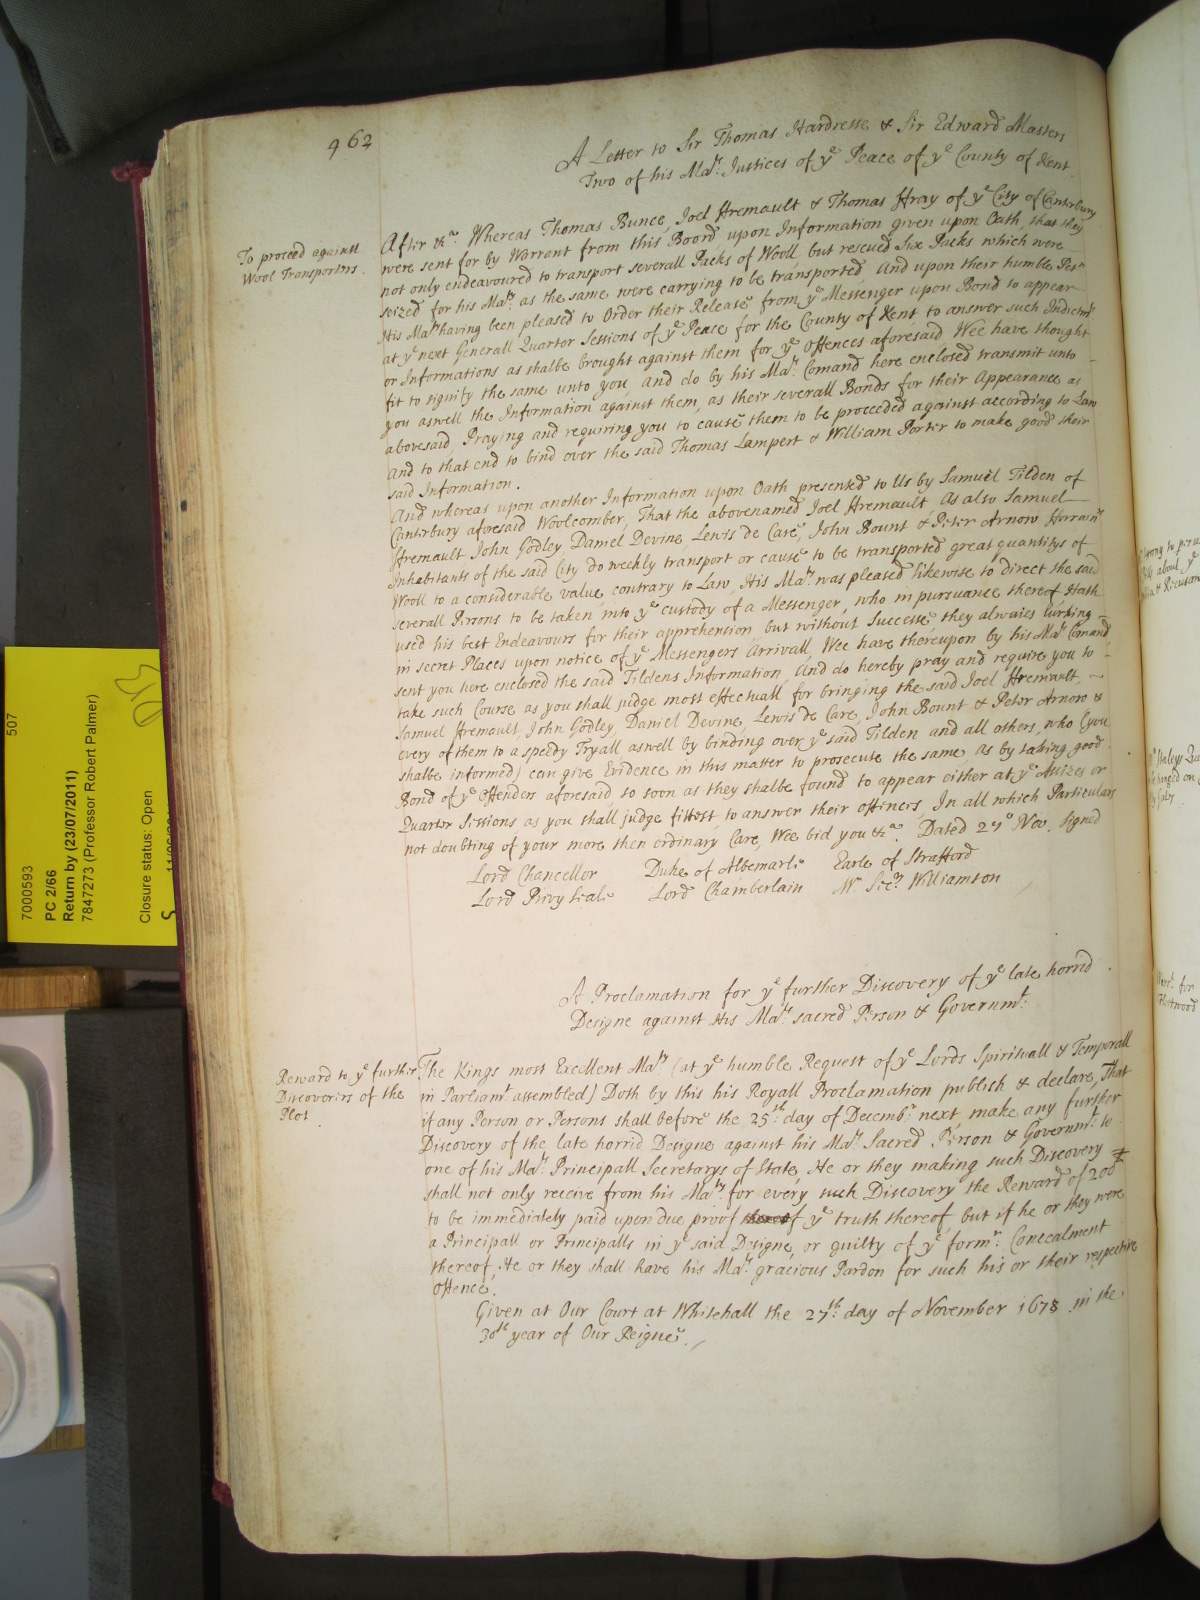 462
A Letter to Sir Thomas Hardresse & Sir Edward Masters
Two of his Ma.ts Justices of ye Peace of ye County of Kent.
To proceed against
Wool Transporters.
After &ca. Whereas Thomas Bunce, Joel Hremault & Thomas Hray of ye City of Canterbury
were sent for by Warrant from this Board upon Information given upon Oath, that they
not only endeavoured to transport severall Packs of Wooll, but rescued Six Packs which were
seized for his Ma.ty as the same were carrying to be transported, And upon their humble Peton
His Ma.ty having been pleased to Order their Release from ye Messenger upon Bond to appear
at ye next Generall Quarter Sessions of ye Peace for the County of Kent to answer such Indictmts
or Informations as shalbe brought against them for ye Offences aforesaid, Wee have thought
fit to signify the same unto you, and do by his Ma.ts Comand here enclosed transmit unto
you aswell the Information against them, as their severall Bonds for their Appearance as
abovesaid, Praying and requiring you to cause them to be proceeded against according to Law
And to that end to bind over the said Thomas Lampert & William Porter to make good their
said Information.
And whereas upon another Information upon Oath presented to Us by Samuel Tilden of
Canterbury aforesaid Woolcomber, That the abovenamed Joel Hremault, As also Samuel
Hremault John Godley Daniel Devine, Lewis de Care, John Bount & Peter Arnow
Inhabitants of the said City do weekly transport or cause to be transported great quantitys of
Wooll to a considerable value, contrary to Law, His Ma.ty was pleased likewise to direct the said
severall Persons to be taken into ye custody of a Messenger, who in pursuance thereof Hath
used his best Endeavours for their apprehension, but without Successe, they alwaies lurking
in secret Places upon notice of ye Messengers Arrivall, Wee have thereupon by his Ma.ts Comand
sent you here enclosed the said Tildens Information, And do hereby pray and require you to
take such Course as you shall judge most effectuall for bringing the said Joel Hremault,
Samuel Hremault, John Godley, Daniel Devine, Lewis de Care, John Bount & Peter Arnow &
every of them to a speedy Tryall aswell by binding over ye said Tilden and all others, who (you
shalbe informed) can give Evidence in this matter to prosecute the same, as by taking good
Bond of ye Offenders aforesaid, so soon as they shalbe found to appear either at ye Assizes or
Quarter Sessions as you shall judge fittest, to answer their offences, In all which Particulars
not doubting of your more then ordinary Care, Wee bid you &ca. Dated 27o Nov. Signed
Lord Chancellor Duke of Albemarle Earle of Strafford
Lord Privy Seale Lord Chamberlain Mr Secry Williamson
A Proclamation for ye further Discovery of ye late horrid
Designe against His Ma.ts sacred Person & Governmt.
Reward to ye further
Discoverers of the
Plot
The Kings most Excellent Ma.ty (at ye humble Request of ye Lords Spirituall & Temporall
in Parliamt assembled) Doth by this his Royall Proclamation publish & declare, That
if any Person or Persons shall before the 25th day of Decembr next make any further
Discovery of the late horrid Designe against his Ma.ts Sacred Person & Governmt. to
one of his Ma.ts Principall Secretarys of State, He or they making such Discovery
shall not only receive from his Ma.ty for every such Discovery the Reward of 200 £
to be immediately paid upon due proof ye truth thereof, but if he or they were
a Principall or Principalls in ye said Designe, or guilty of ye formr. Concealment
thereof, He or they shall have his Ma.ts gracious Pardon for such his or their respective
Offence.
Given at Our Court at Whitehall the 27th day of November 1678 in the
30th year of Our Reigne.
507
7000593
PC 2/66
Return by (23/07/2011)
7847273 (Professor Robert Palmer)
Closure status: Open